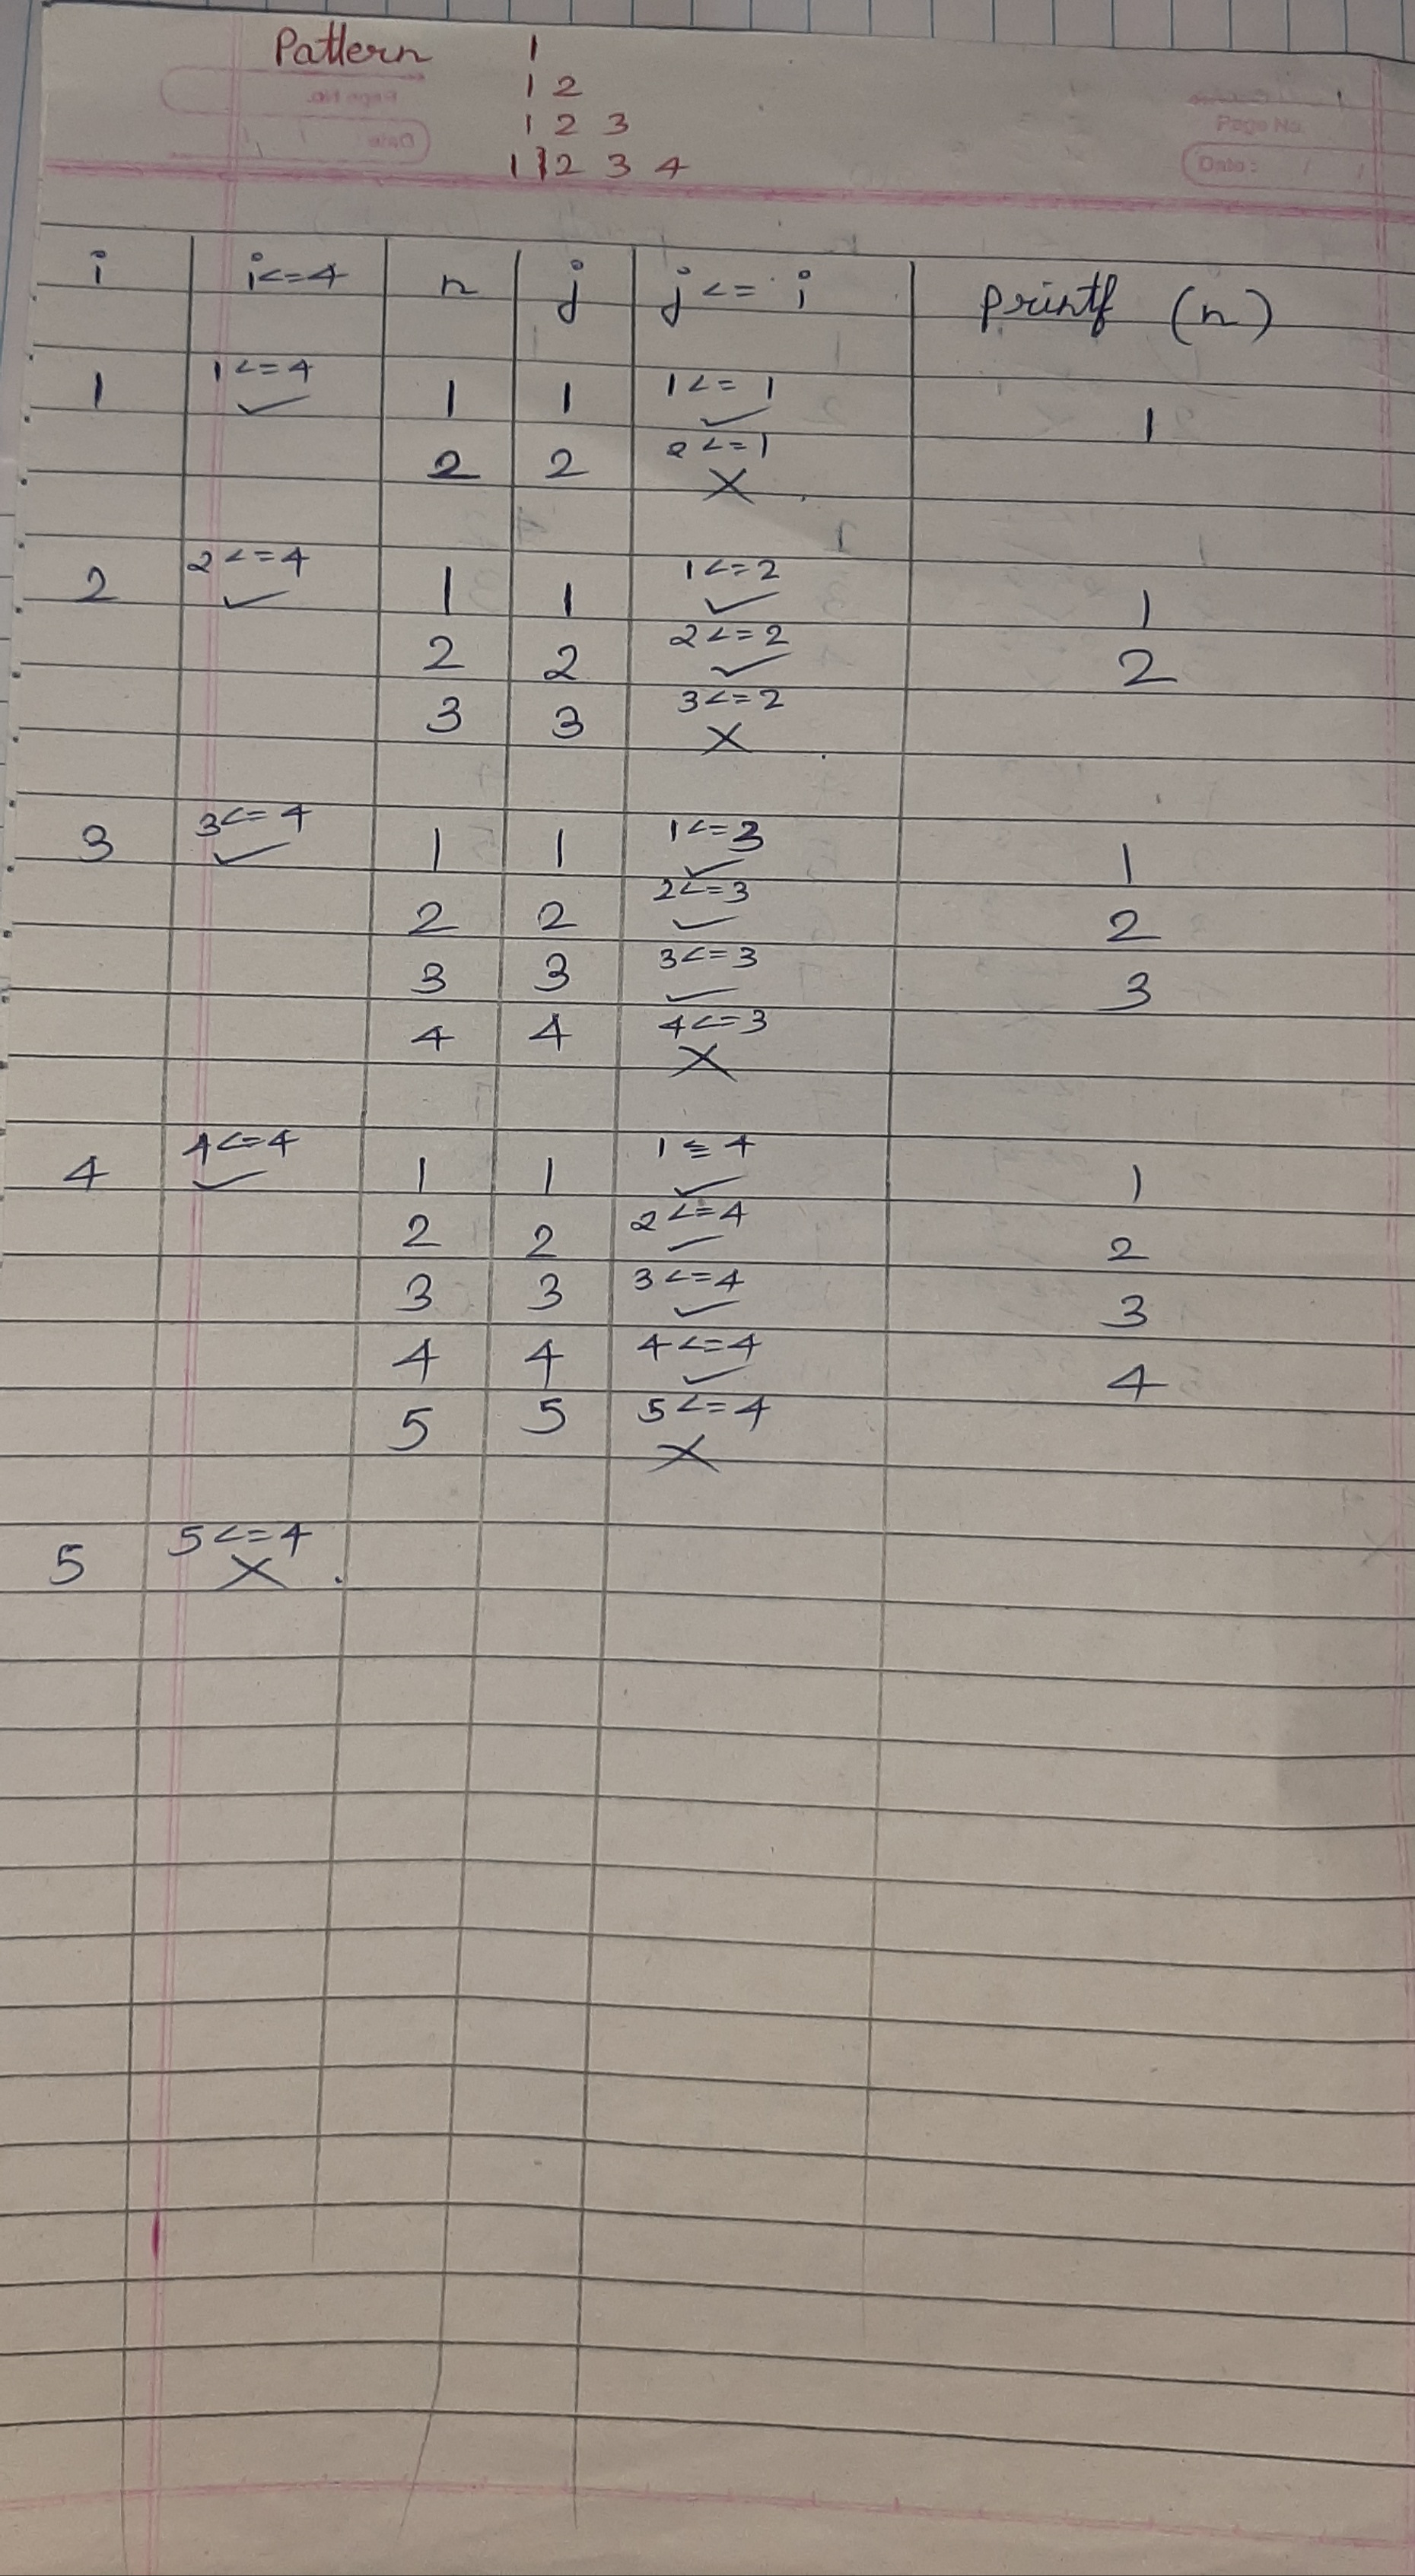 Pattern 1
1 2
1 2 3
1 2 3 4
Page No.
Date: / /
i i<=4 n j j<= i printf (n)
1 1<=4 ✓ 1 1 1<= 1 ✓ 1
2 2 2<=1 X
2 2<=4 ✓ 1 1 1<=2 ✓ 1
2 2 2<=2 ✓ 2
3 3 3<=2 X
3 3<=4 ✓ 1 1 1<=3 ✓ 1
2 2 2<=3 ✓ 2
3 3 3<=3 ✓ 3
4 4 4<=3 X
4 4<=4 ✓ 1 1 1≤4 ✓ 1
2 2 2<=4 ✓ 2
3 3 3<=4 ✓ 3
4 4 4<=4 ✓ 4
5 5 5<=4 X
5 5<=4 X .